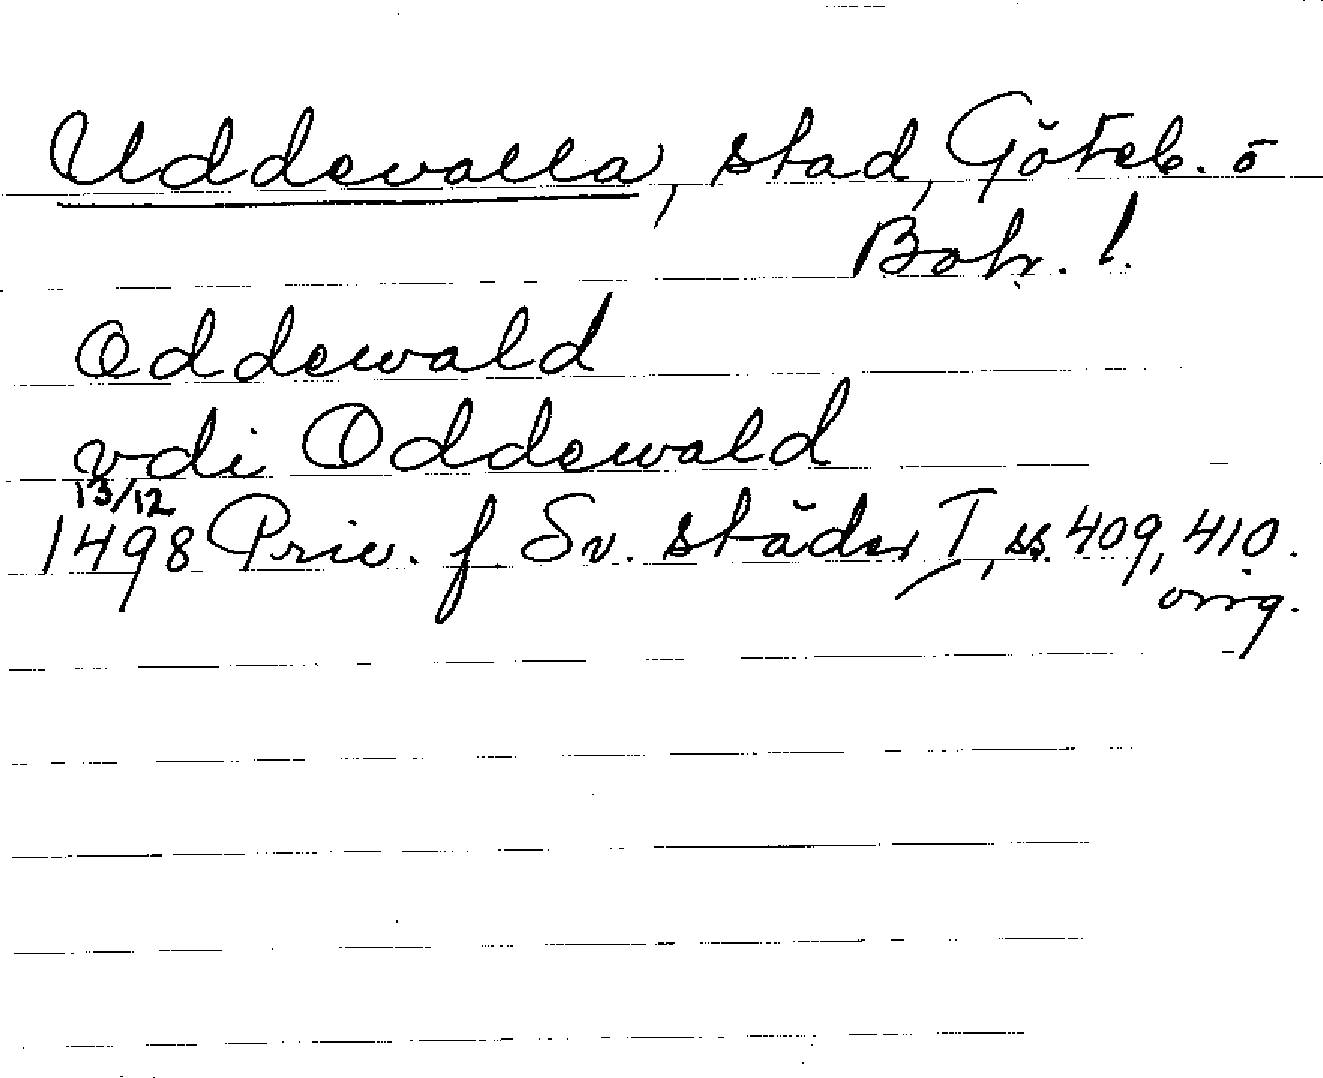 Uddevalla, stad, Göteb. o
Boh. l.
Oddewald
vdi Oddewald
13/12
1498 Priv. f Sv. städer I, ss. 409, 410.
orig.